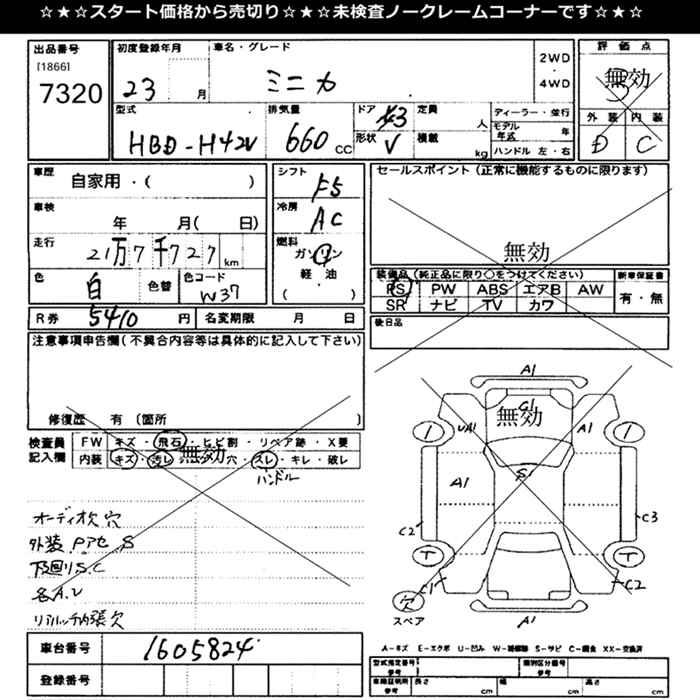 ☆★☆★スタート価格から売切り☆★☆★未検査ノークレームコーナーです☆★☆
出品番号 初度登録年月 車名・グレード 評価点
[1866] 7320
23 月 ミニカ
2WD・4WD
無効
外装 内装
D C
型式 排気量 ドア 定員 ディーラー・並行
HBD-H42V 660CC 3 人
形状 V 積載 kg
モデル年式 年
ハンドル 左・右
車歴 自家用・( )
シフト F5
セールスポイント (正常に機能するものに限ります)
無効
車検 年 月( 日)
冷房 AC
走行 21万7千727km
燃料 ガソリン
軽・油
( )
色 白 色替 色コード W37
装備品 (純正品に限り○をつけてください) 新車保証書
PS PW ABS エアB AW 有・無
SR ナビ TV カワ
R券 5410 円 名変期限 月 日
後日品
注意事項申告欄(不具合内容等は具体的に記入して下さい)
修復歴 有 (箇所 )
検査員記入欄
FW キズ・飛石・ヒビ割・リペア跡・X要
内装 キズ・汚レ・穴・スレ・キレ・破レ
無効
ハンドル
オーディオ欠 穴
外装 Pアセ S
下回りS.C
各A.U
リアハッチ内張欠
車台番号 1605824
登録番号
A1
C1
無効
UA1 A1
A1 S1
C2 C3
C1 C2
A1
欠
スペア
A-キズ E-エクボ U-凹ミ W-補修跡 S-サビ C-腐食 XX-交換済
型式指定番号 参考
類別区分番号 参考
車検証判明 参考 長さ cm 幅 cm 高さ cm